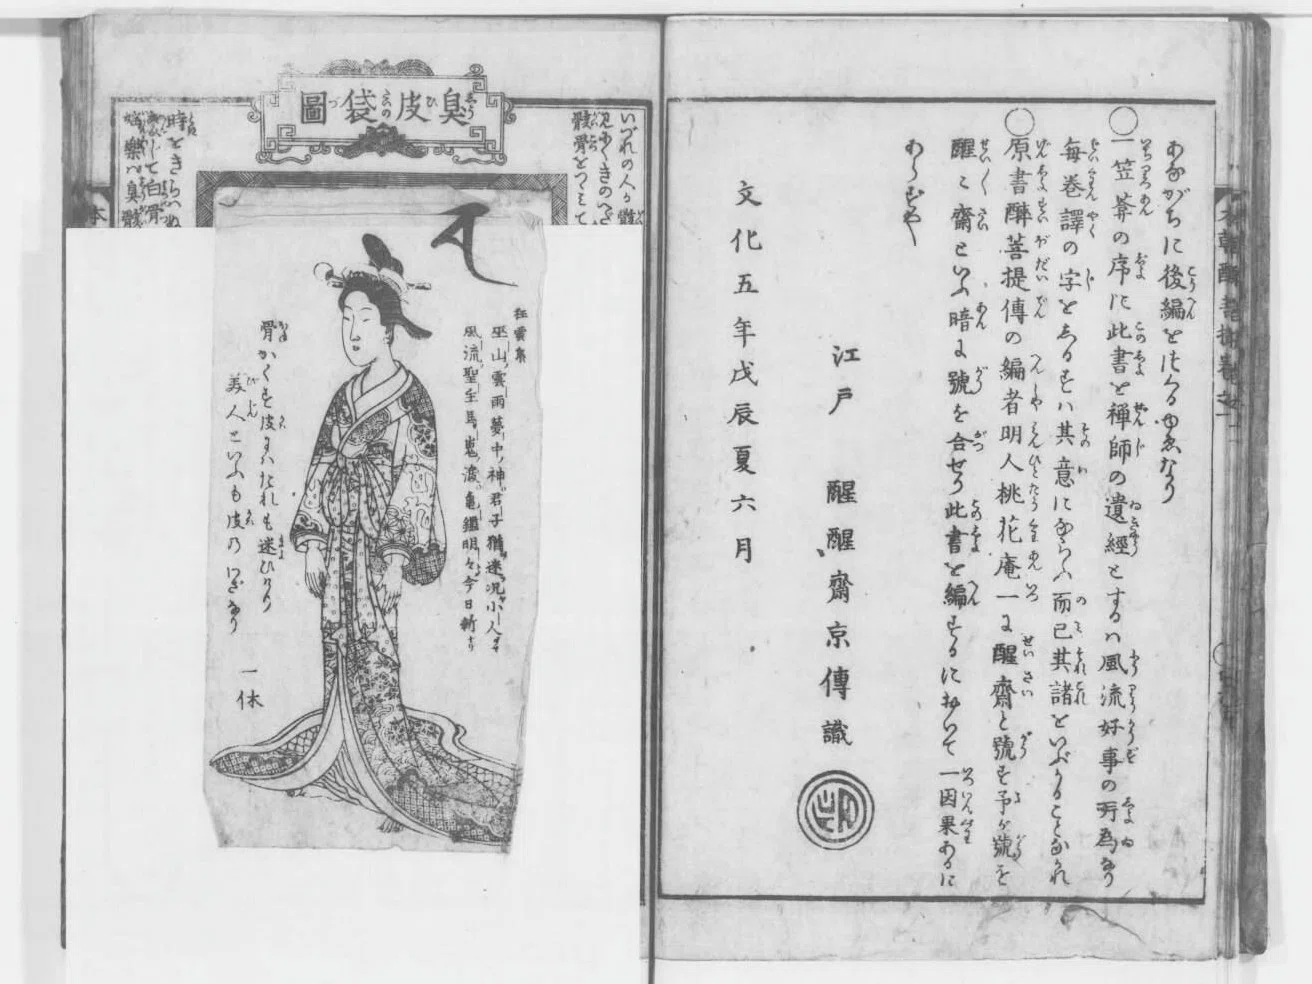 あながちに後編をはくるゆゑなり
○一笠葊の序に此書を禅師の遺經とするハ風流好事の所為なり
毎巻譯の字をゑるすハ其意にならふ而已其諸をいぶかることなかれ
○原書醉菩提傳の編者明人桃花庵一に醒齋と號す予が號を
醒々齋といふ暗に號を合せり此書を編するに於いて一因果あるに
あらずや
江戸 醒醒齋京傳識
文化五年戊辰夏六月
臭皮袋圖
いづれの人か
骸骨をつゝミて
狂雲集
巫山雲雨夢中神君子猶迷况小人
風流聖主馬嵬涙亀鑑明々今日新
骨かくす皮にハたれも迷ひけり
美人といふも皮のわざなり
一休
時をきらハぬ
して白骨
樂ハ臭骸